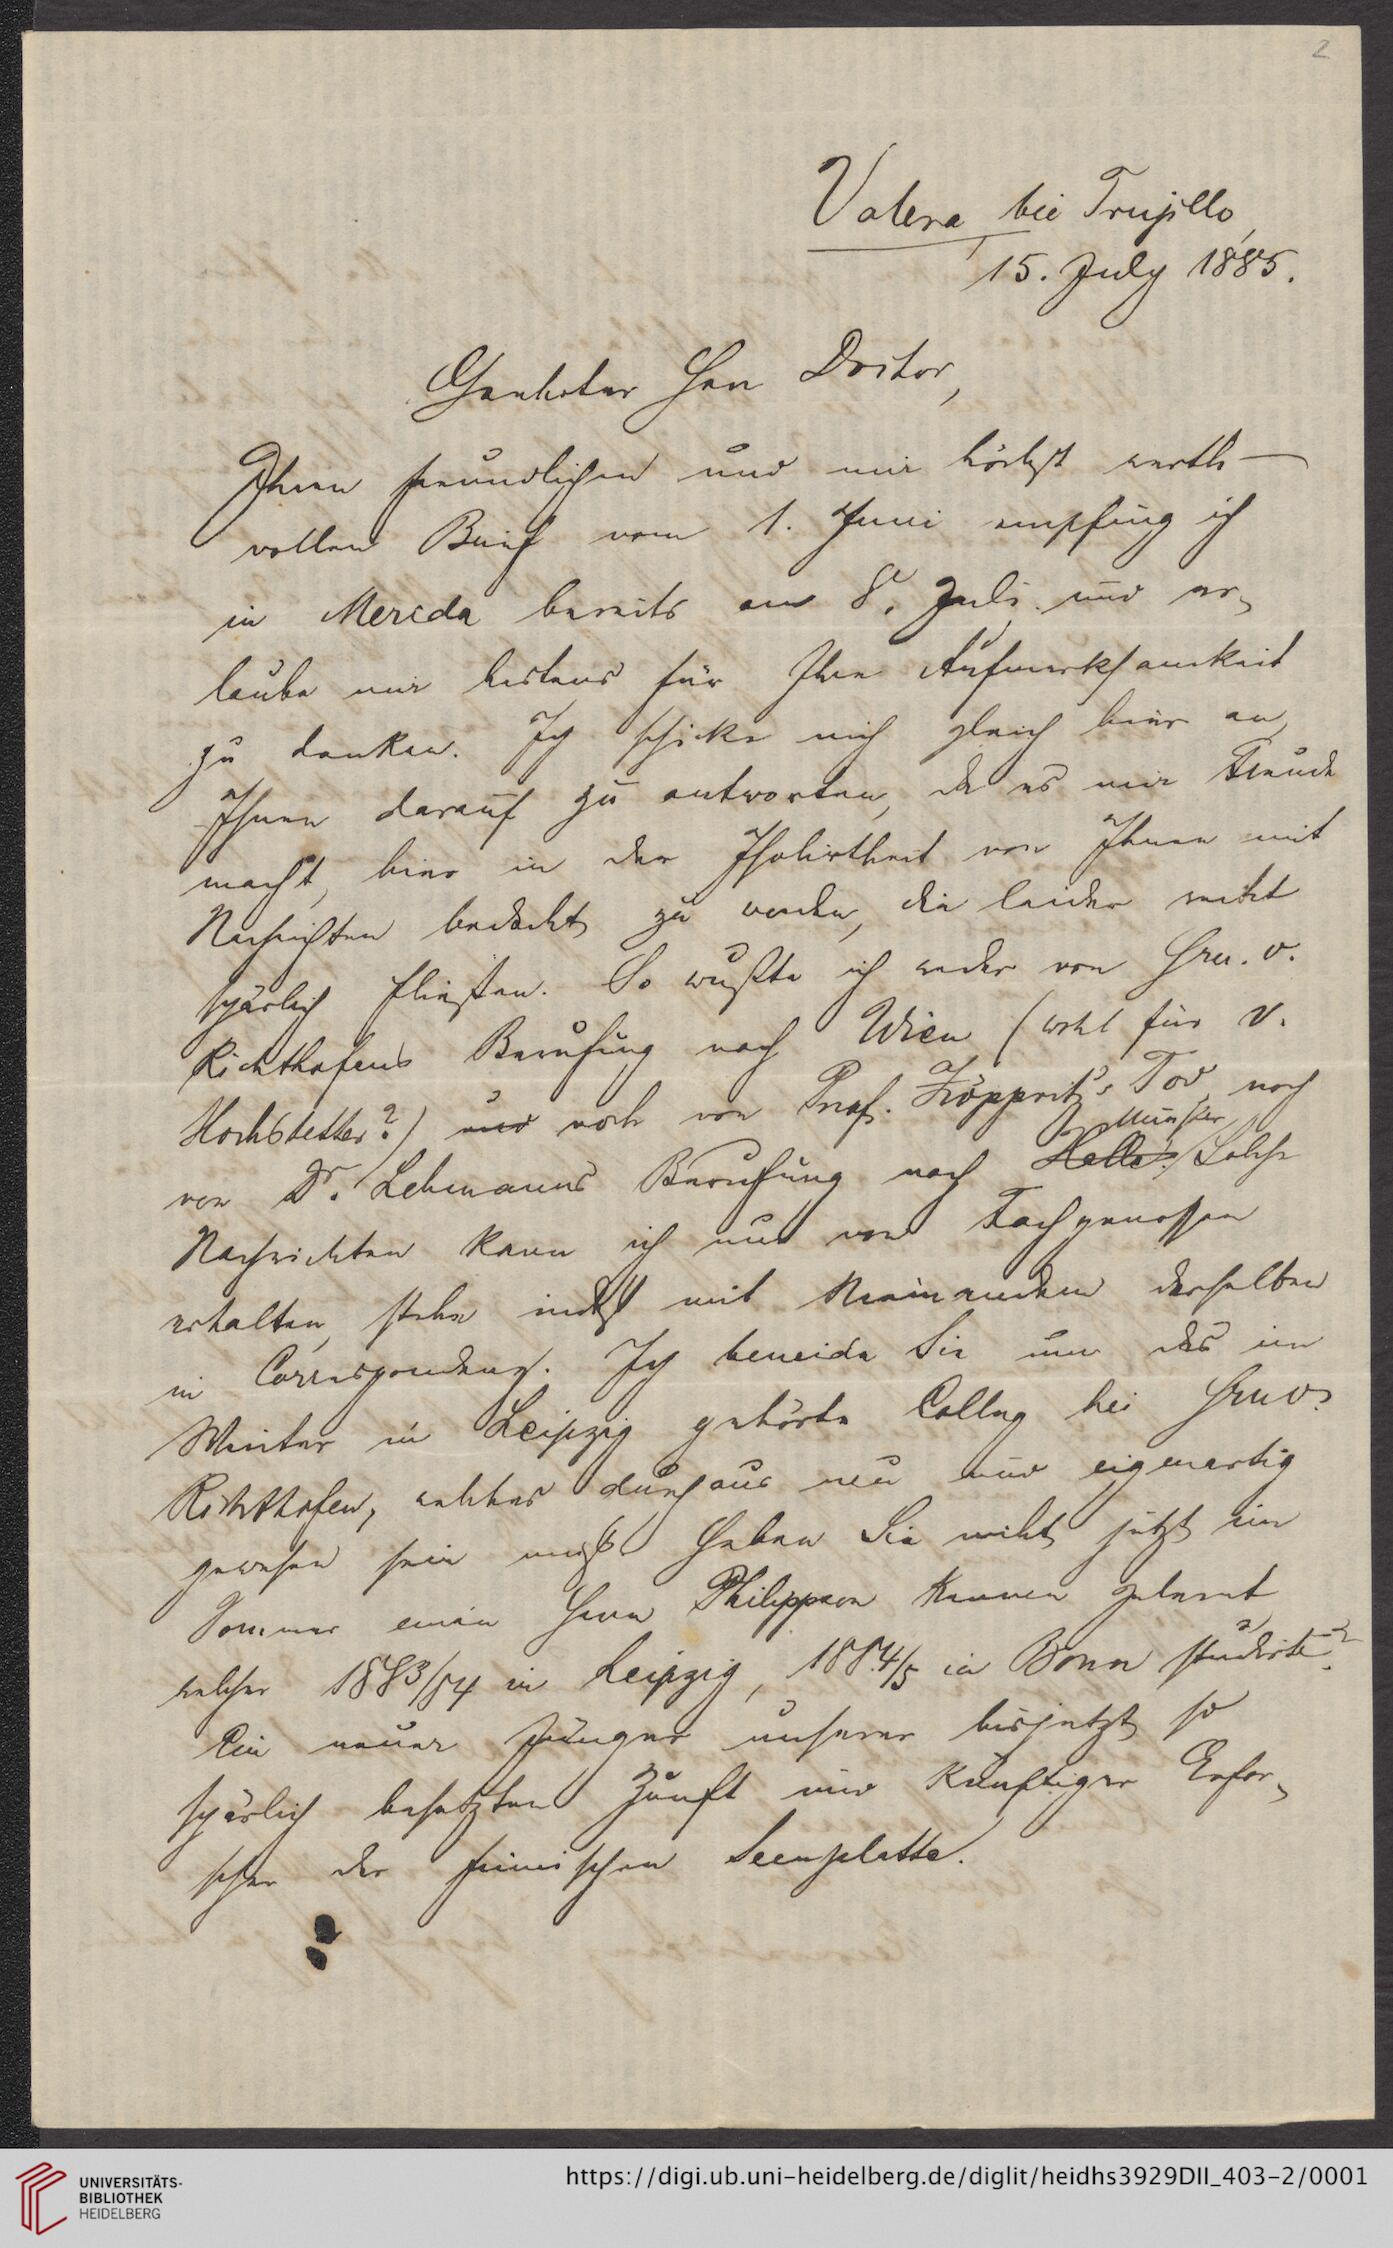 2
Valera bei Trujillo,
15. July 1885.
Geehrter Herr Doctor,
Ihren freundlichen und mir höchst werth-
vollen Brief vom 1. Juni empfing ich
in Merida bereits am 8. Juli und er-
laube mir bestens für Ihre Aufmerksamkeit
zu danken. Ich schicke mich gleich hier an,
Ihnen darauf zu antworten, da es mir Freude
macht, hier in der Isolirtheit von Ihnen mit
Nachrichten bedacht zu werden, die leider recht
spärlich fließen. So wußte ich weder von Hrn. v.
Richthofens Berufung nach Wien (wohl für v.
Hochstetter?) und noch von Prof. Zöppritz's Tod, noch
von Dr. Lehmanns Berufung nach Halle Münster. Solche
Nachrichten kann ich nur von Fachgenossen
erhalten, stehe indeß mit Niemandem derselben
in Correspondenz. Ich beneide Sie um das im
Winter in Leipzig gehörte Colleg bei Hrn v.
Richthofen, welches durchaus neu und eigenartig
gewesen sein muß. Haben Sie nicht jetzt im
Sommer einen Herrn Philippson kennen gelernt
welcher 1883/84 in Leipzig, 1884/5 in Bonn studirte?
Ein neuer Jünger unserer bisjetzt so
spärlich besetzten Zunft und künftiger Erfor-
scher der finnischen Seenplatte.
UNIVERSITÄTS-
BIBLIOTHEK
HEIDELBERG
https://digi.ub.uni-heidelberg.de/diglit/heidhs3929DII_403-2/0001